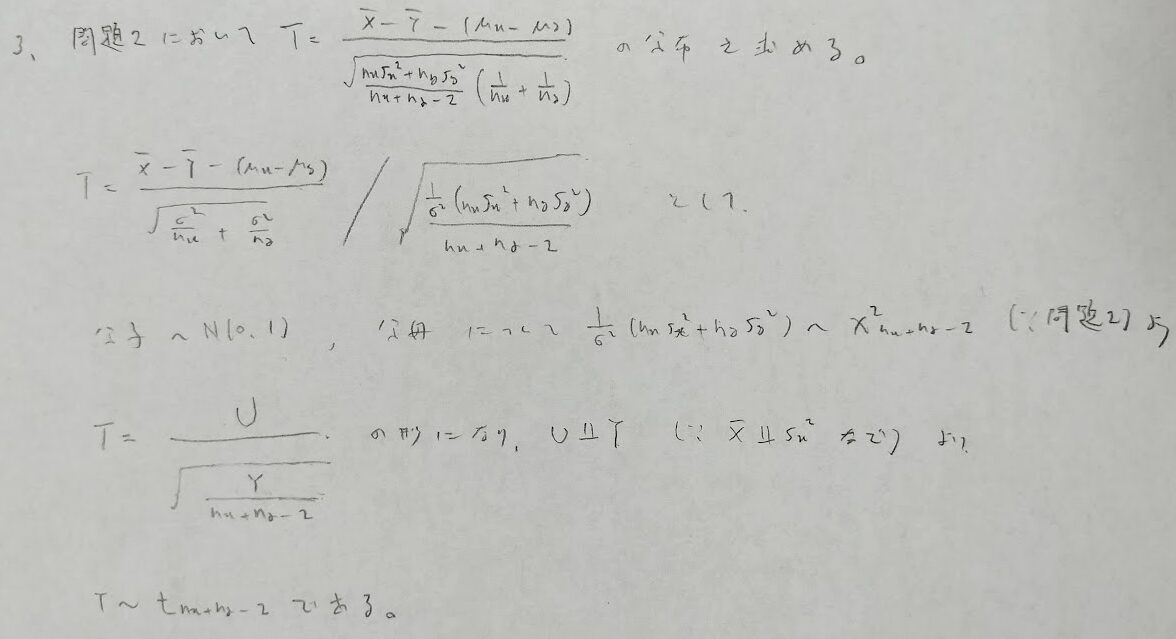 3、問題2において T = \frac{\bar{X} - \bar{Y} - (μ_x - μ_y)}{\sqrt{\frac{n_x S_x^2 + n_y S_y^2}{n_x + n_y - 2} (\frac{1}{n_x} + \frac{1}{n_y})}} の分布を求める。
T = \frac{\bar{X} - \bar{Y} - (μ_x - μ_y)}{\sqrt{\frac{σ^2}{n_x} + \frac{σ^2}{n_y}}} / \sqrt{\frac{\frac{1}{σ^2} (n_x S_x^2 + n_y S_y^2)}{n_x + n_y - 2}} として.
分子 ~ N(0, 1), 分母について \frac{1}{σ^2} (n_x S_x^2 + n_y S_y^2) ~ χ^2_{n_x + n_y - 2} (∵ 問題2) より
T = \frac{U}{\sqrt{\frac{Y}{n_x + n_y - 2}}} の形になり, U ⫫ Y (∵ \bar{X} ⫫ S_x^2 など) より
T ~ t_{n_x + n_y - 2} である。